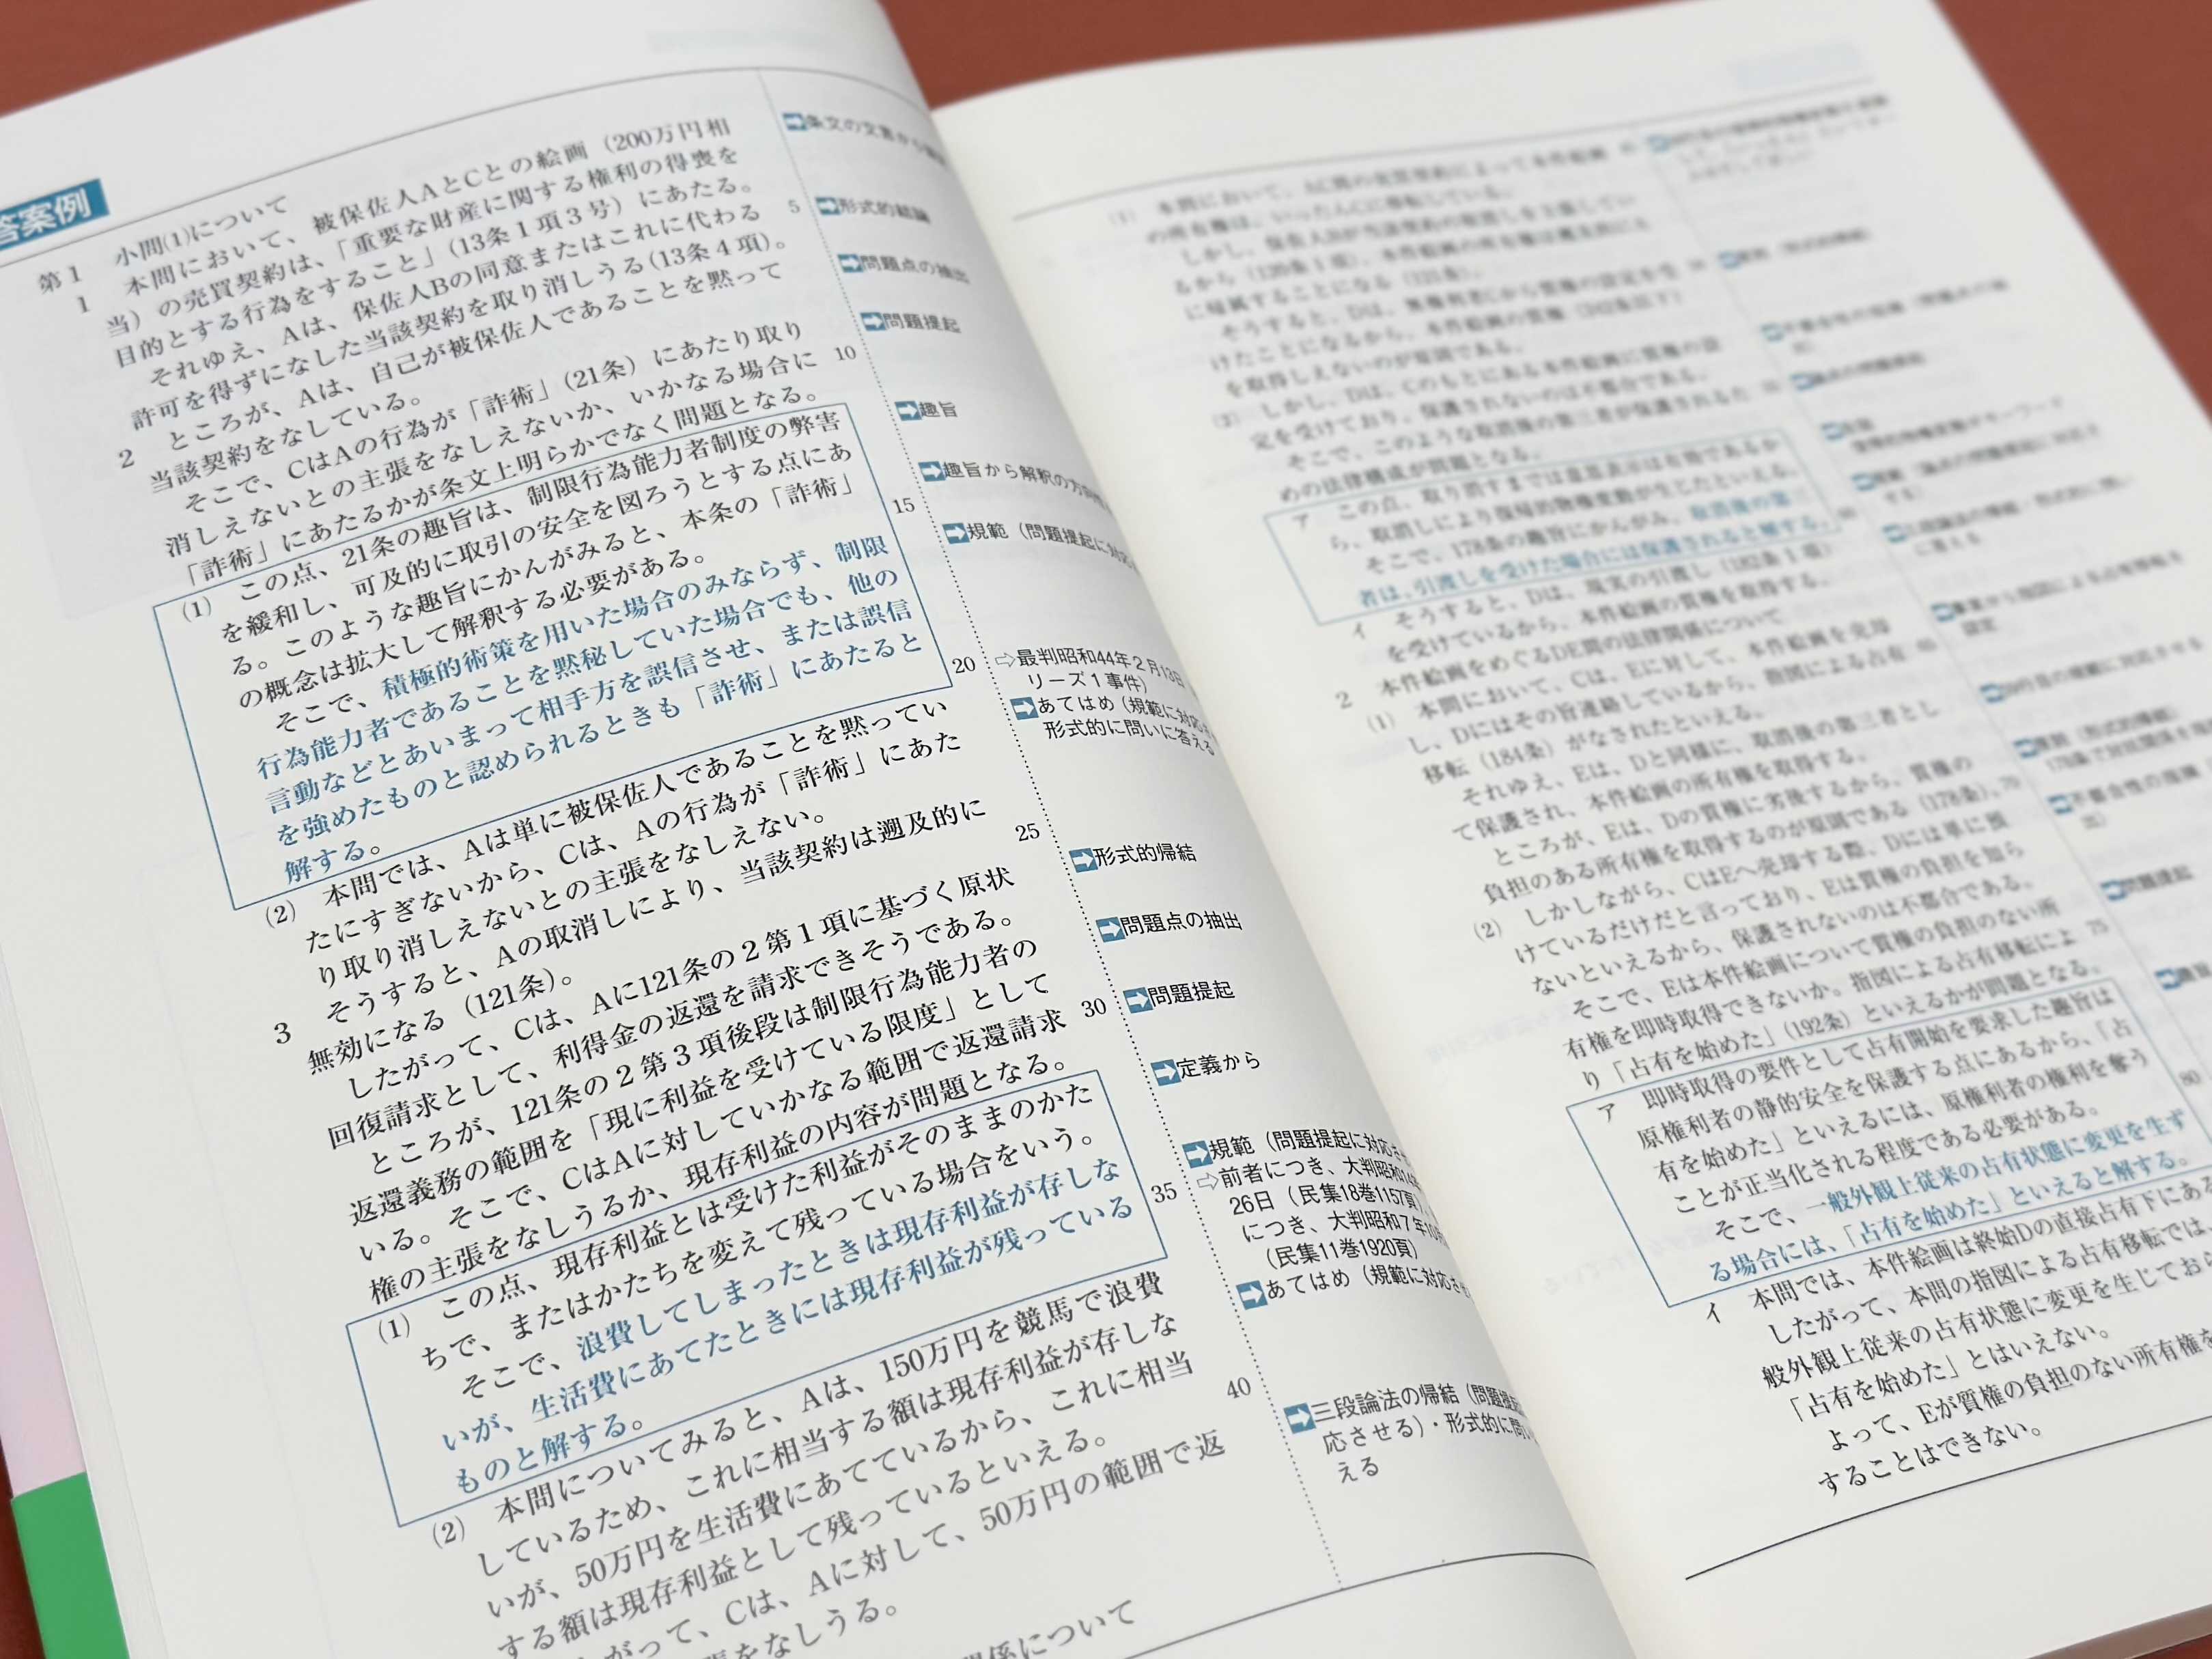 答案例
第1　小問(1)について
1　本問において、被保佐人AとCとの絵画（200万円相
当）の売買契約は、「重要な財産に関する権利の得喪を
目的とする行為をすること」（13条1項3号）にあたる。
それゆえ、Aは、保佐人Bの同意またはこれに代わる
許可を得ずになした当該契約を取り消しうる（13条4項）。
2　ところが、Aは、自己が被保佐人であることを黙って
当該契約をなしている。
そこで、CはAの行為が「詐術」（21条）にあたり取り
消しえないとの主張をなしえないか、いかなる場合に
「詐術」にあたるかが条文上明らかでなく問題となる。
(1)　この点、21条の趣旨は、制限行為能力者制度の弊害
を緩和し、可及的に取引の安全を図ろうとする点にあ
る。このような趣旨にかんがみると、本条の「詐術」
の概念は拡大して解釈する必要がある。
そこで、積極的術策を用いた場合のみならず、制限
行為能力者であることを黙秘していた場合でも、他の
言動などとあいまって相手方を誤信させ、または誤信
を強めたものと認められるときも「詐術」にあたると
解する。
(2)　本問では、Aは単に被保佐人であることを黙ってい
たにすぎないから、Cは、Aの行為が「詐術」にあた
り取り消しえないとの主張をなしえない。
3　そうすると、Aの取消しにより、当該契約は遡及的に
無効になる（121条）。
したがって、Cは、Aに121条の2第1項に基づく原状
回復請求として、利得金の返還を請求できそうである。
ところが、121条の2第3項後段は制限行為能力者の
返還義務の範囲を「現に利益を受けている限度」として
いる。そこで、CはAに対していかなる範囲で返還請求
権の主張をなしうるか、現存利益の内容が問題となる。
(1)　この点、現存利益とは受けた利益がそのままのかた
ちで、またはかたちを変えて残っている場合をいう。
そこで、浪費してしまったときは現存利益が存しな
いが、生活費にあてたときには現存利益が残っている
ものと解する。
(2)　本問についてみると、Aは、150万円を競馬で浪費
しているため、これに相当する額は現存利益が存しな
いが、50万円を生活費にあてているから、これに相当
する額は現存利益として残っているといえる。
がって、Cは、Aに対して、50万円の範囲で返
張をなしうる。
関係について
5
10
15
20
25
30
35
40
条文の文言から
形式的結論
問題点の抽出
問題提起
趣旨
趣旨から解釈の方向性
規範（問題提起に対応
最判昭和44年2月13日
リーズ1事件）
あてはめ（規範に対応させ
形式的に問いに答える
形式的帰結
問題点の抽出
問題提起
定義から
規範（問題提起に対応さ
前者につき、大判昭和14年
26日（民集18巻1157頁）、
につき、大判昭和7年10月
（民集11巻1920頁）
あてはめ（規範に対応させ
三段論法の帰結（問題提起
応させる）・形式的に問い
える
(1)　本問において、AC間の売買契約によって本件絵画
の所有権は、いったんCに移転している。
しかし、保佐人Bが当該契約の取消しを主張してい
るから（120条1項）、本件絵画の所有権は遡及的にA
に帰属することになる（121条）。
そうすると、Dは、無権利者Cから質権の設定を受
けたことになるから、本件絵画の質権（342条以下）
を取得しえないのが原則である。
(2)　しかし、Dは、Cのもとにある本件絵画に質権の設
定を受けており、保護されないのは不都合である。
そこで、このような取消後の第三者が保護されるた
めの法律構成が問題となる。
ア　この点、取り消すまでは意思表示は有効であるか
ら、取消しにより復帰的物権変動が生じたといえる。
そこで、178条の趣旨にかんがみ、取消後の第三
者は、引渡しを受けた場合には保護されると解する。
イ　そうすると、Dは、現実の引渡し（182条1項）
を受けているから、本件絵画の質権を取得する。
2　本件絵画をめぐるDE間の法律関係について
(1)　本問において、Cは、Eに対して、本件絵画を売却
し、Dにはその旨連絡しているから、指図による占有
移転（184条）がなされたといえる。
それゆえ、Eは、Dと同様に、取消後の第三者とし
て保護され、本件絵画の所有権を取得する。
ところが、Eは、Dの質権に劣後するから、質権の
負担のある所有権を取得するのが原則である（178条）。
(2)　しかしながら、CはEへ売却する際、Dには単に預
けているだけだと言っており、Eは質権の負担を知ら
ないといえるから、保護されないのは不都合である。
そこで、Eは本件絵画について質権の負担のない所
有権を即時取得できないか。指図による占有移転によ
り「占有を始めた」（192条）といえるかが問題となる。
ア　即時取得の要件として占有開始を要求した趣旨は
原権利者の静的安全を保護する点にあるから、「占
有を始めた」といえるには、原権利者の権利を奪う
ことが正当化される程度である必要がある。
そこで、一般外観上従来の占有状態に変更を生ず
る場合には、「占有を始めた」といえると解する。
イ　本問では、本件絵画は終始Dの直接占有下にある
したがって、本問の指図による占有移転では、
般外観上従来の占有状態に変更を生じておら
「占有を始めた」とはいえない。
よって、Eが質権の負担のない所有権を
することはできない。
70
75
80
問題提起